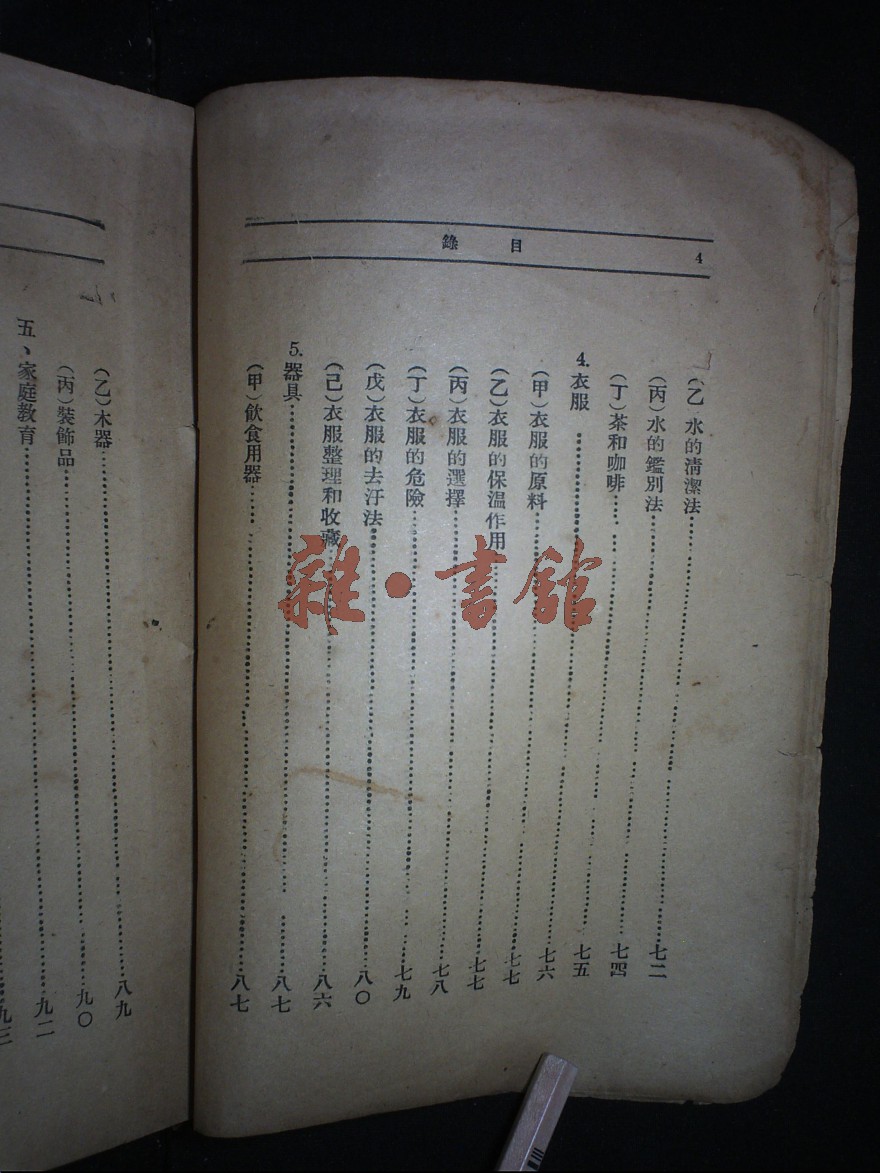 目錄
4
(乙 水的清潔法……七二
(丙)水的鑑別法……七四
(丁)茶和咖啡……七五
4. 衣服……七六
(甲)衣服的原料……七七
(乙)衣服的保溫作用……七七
(丙)衣服的選擇……七八
(丁)衣服的危險……七九
(戊)衣服的去汙法……八〇
(己)衣服整理和收藏……八六
5. 器具……八七
(甲)飲食用器……八七
(乙)木器……八九
(丙)裝飾品……九〇
五、家庭教育……九二
九三
雜·書館